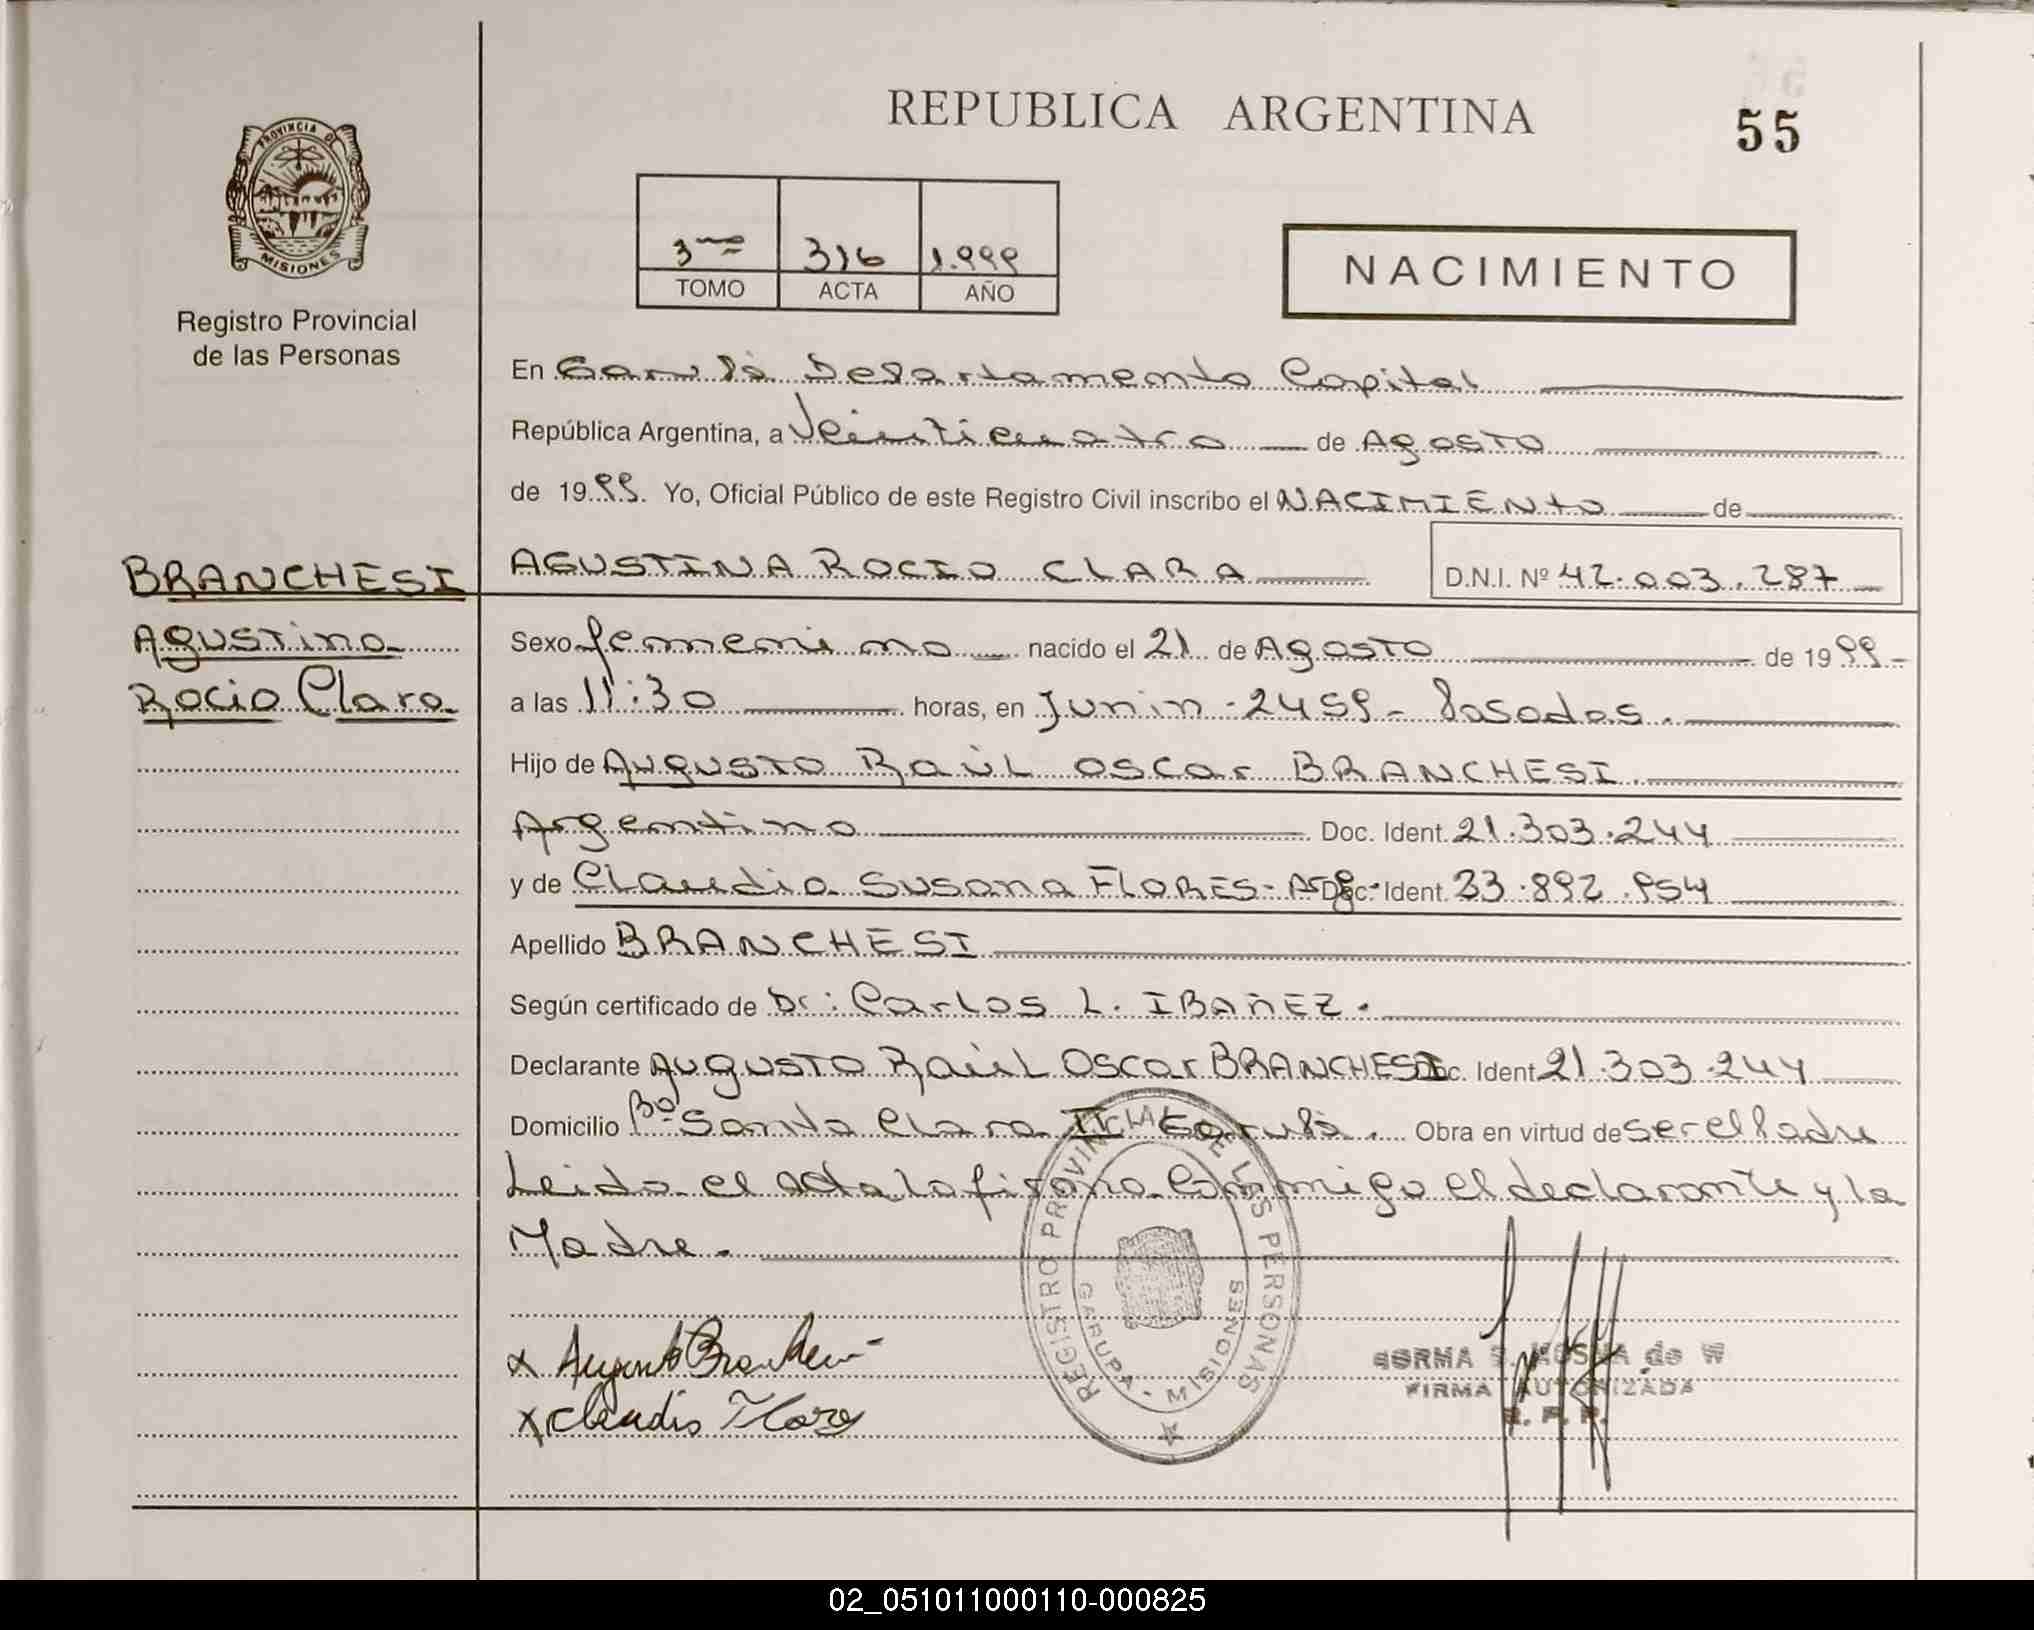 REPUBLICA ARGENTINA
55
PROVINCIA DE
MISIONES
Registro Provincial
de las Personas
3ro 316 1.999
TOMO ACTA AÑO
NACIMIENTO
En Garupá Departamento Capital
República Argentina, a Veinticuatro de Agosto
de 1999. Yo, Oficial Público de este Registro Civil inscribo el NACIMIENTO de
BRANCHESI AGUSTINA ROCIO CLARA D.N.I. Nº 42.003.287
Agustina
Rocio Clara
Sexo femenino nacido el 21 de Agosto de 1999-
a las 11:30 horas, en Junin - 2459 - Posadas.
Hijo de Augusto Raúl Oscar BRANCHESI
Argentino Doc. Ident. 21.303.244
y de Claudia Susana FLORES - Arg - Doc. Ident. 33.892.954
Apellido BRANCHESI
Según certificado de Dr: Carlos L. IBAÑEZ.
Declarante Augusto Raúl Oscar BRANCHESI Doc. Ident 21.303.244
Domicilio Bº Santa Clara II Garupá. Obra en virtud de ser el Padre
Leida el acta la firma Conmigo el declarante y la
Madre.
REGISTRO PROVINCIAL DE LAS PERSONAS
GARUPA - MISIONES
x Augusto Branchesi
x Claudia Flores
NORMA de W
FIRMA AUTORIZADA
R. P. P.
02_051011000110-000825